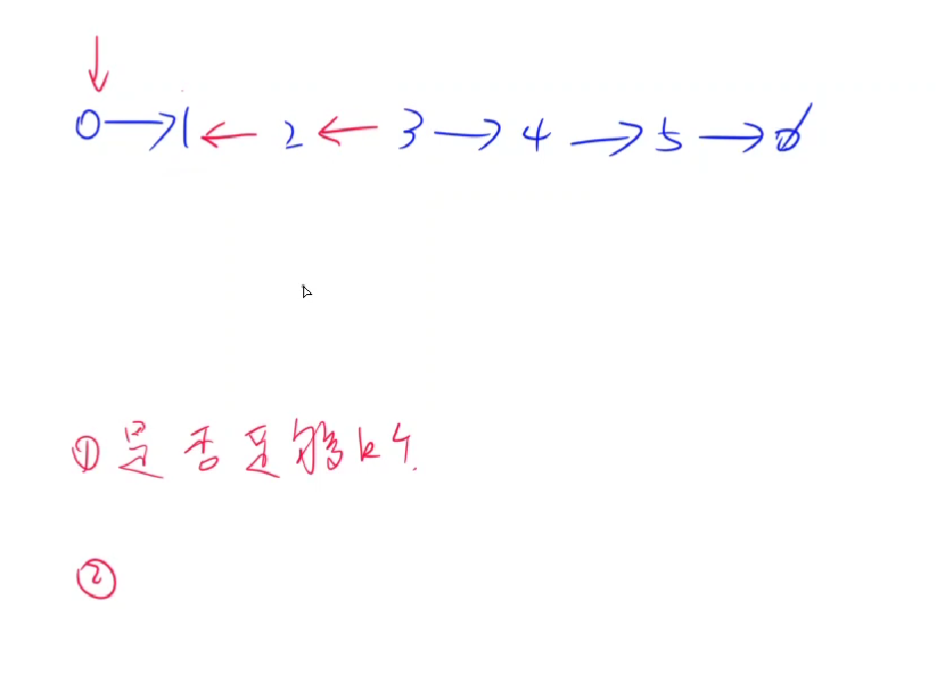 0→1←2←3→4→5→∅
①是否足够k个.
②